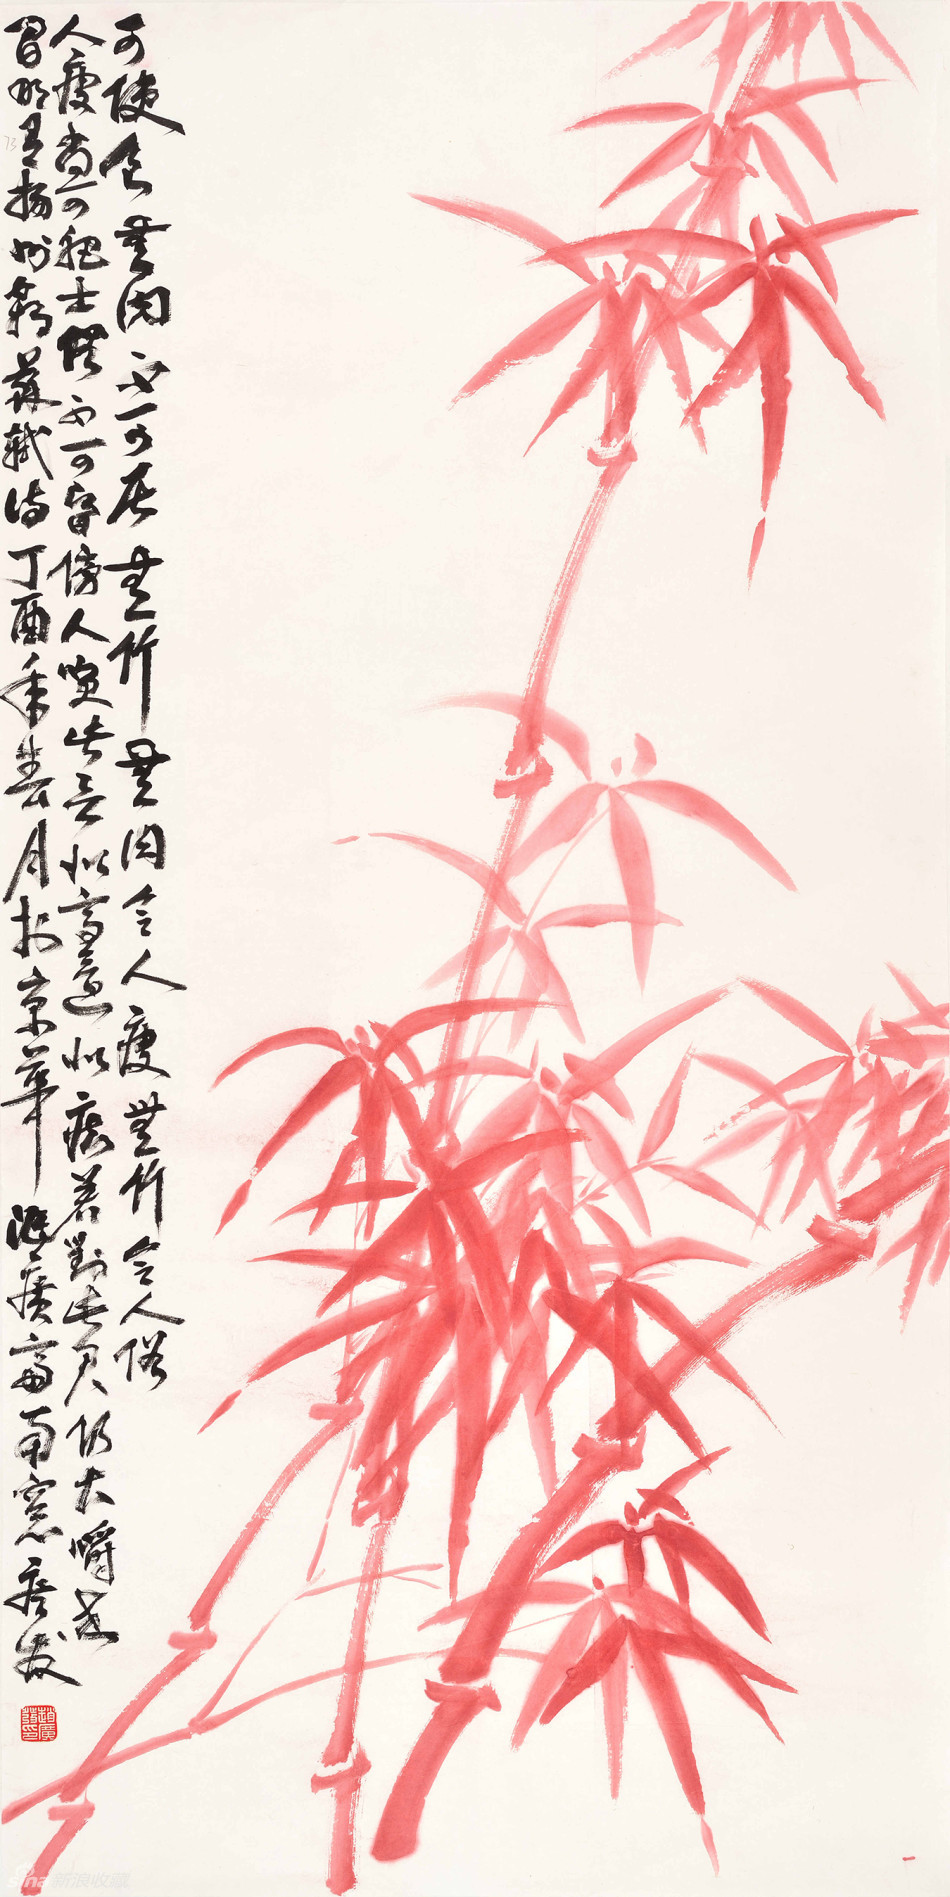 可使食無肉不可居無竹無肉令人瘦無竹令人俗
人瘦尚可肥士俗不可醫傍人笑此言似高還似痴若對此君仍大嚼世
間那有揚州鶴蘇軾詩丁酉年春月於京華齋南窗發
趙廣發印
sina新浪收藏